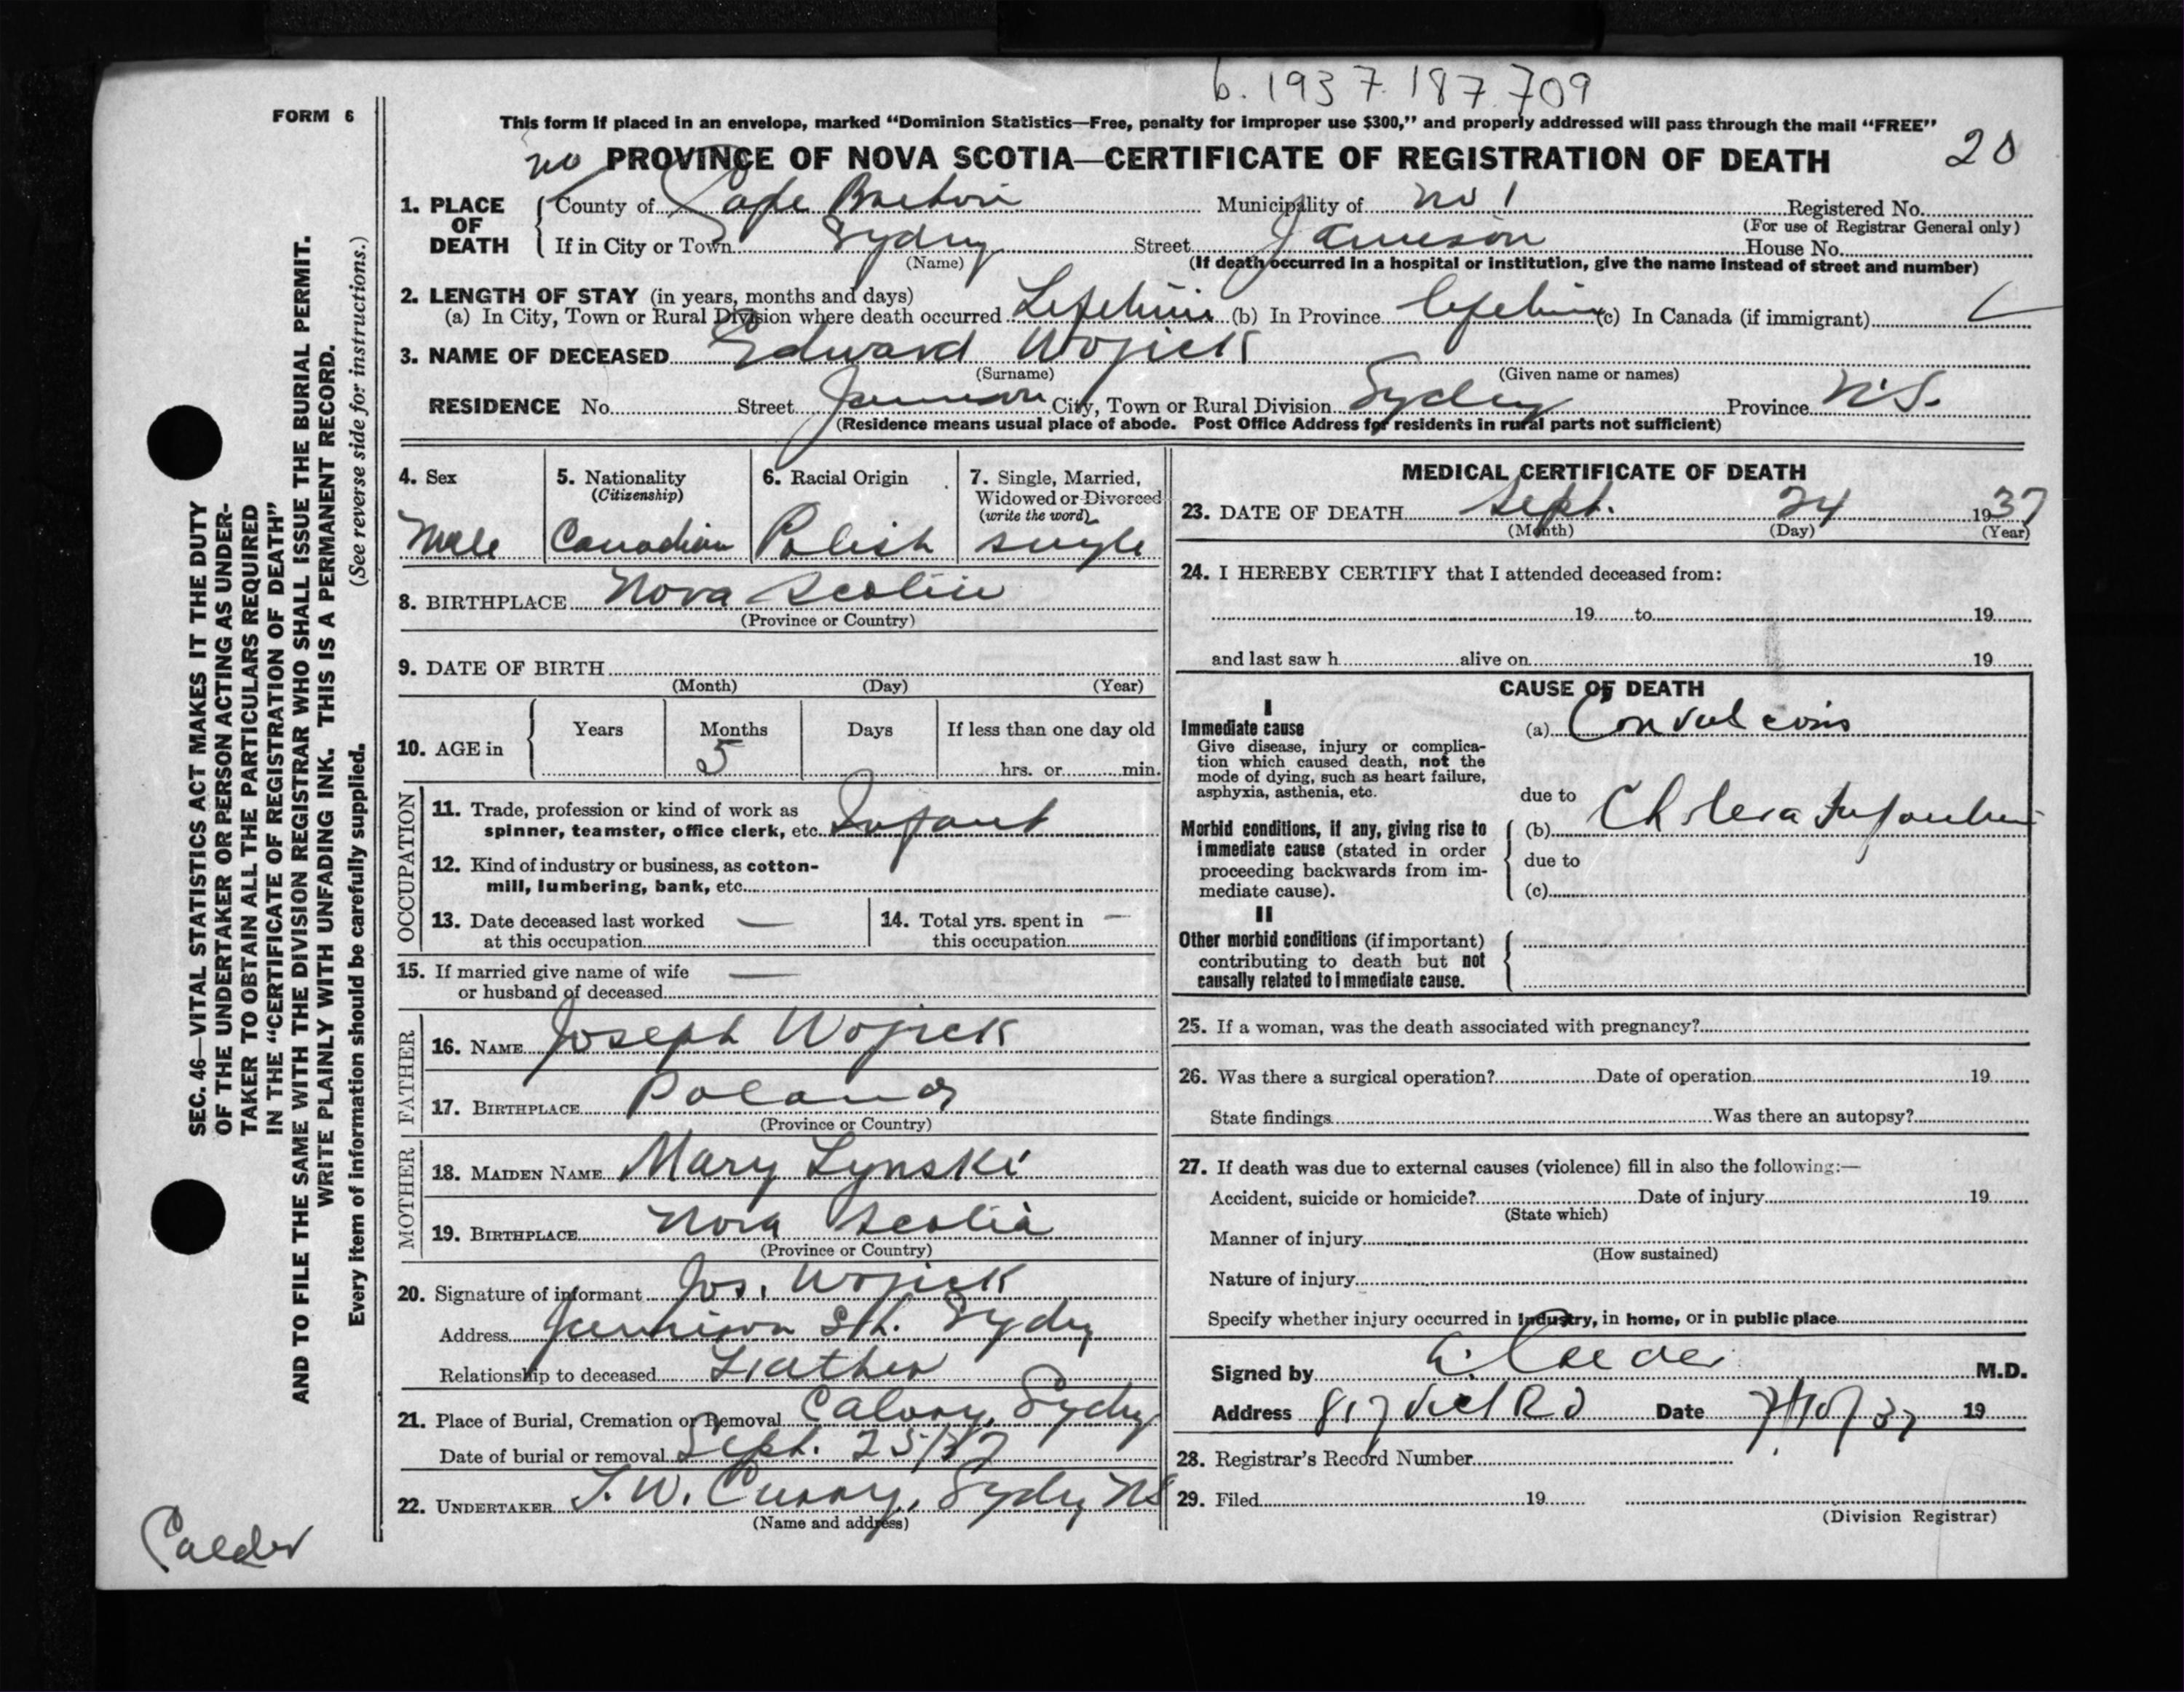 b. 1937. 187. 709
FORM 6
This form if placed in an envelope, marked "Dominion Statistics—Free, penalty for improper use $300," and properly addressed will pass through the mail "FREE"
no PROVINCE OF NOVA SCOTIA—CERTIFICATE OF REGISTRATION OF DEATH 20
1. PLACE OF DEATH County of Cape Breton Municipality of No 1 Registered No.
(For use of Registrar General only)
If in City or Town Sydney Street Jamieson House No.
(Name) (If death occurred in a hospital or institution, give the name instead of street and number)
2. LENGTH OF STAY (in years, months and days)
(a) In City, Town or Rural Division where death occurred Lifetime (b) In Province lifetime (c) In Canada (if immigrant)
3. NAME OF DECEASED Edward Wojick
(Surname) (Given name or names)
RESIDENCE No. Street Jamieson City, Town or Rural Division Sydney Province N.S.
(Residence means usual place of abode. Post Office Address for residents in rural parts not sufficient)
4. Sex 5. Nationality (Citizenship) 6. Racial Origin 7. Single, Married, Widowed or Divorced (write the word)
Male Canadian Polish single
8. BIRTHPLACE Nova Scotia
(Province or Country)
9. DATE OF BIRTH
(Month) (Day) (Year)
10. AGE in Years Months Days If less than one day old
5 hrs. or min.
OCCUPATION
11. Trade, profession or kind of work as
spinner, teamster, office clerk, etc. Infant
12. Kind of industry or business, as cotton-
mill, lumbering, bank, etc.
13. Date deceased last worked —
at this occupation
14. Total yrs. spent in —
this occupation
15. If married give name of wife —
or husband of deceased
FATHER
16. NAME Joseph Wojick
17. BIRTHPLACE Poland
(Province or Country)
MOTHER
18. MAIDEN NAME Mary Lynski
19. BIRTHPLACE Nova Scotia
(Province or Country)
20. Signature of informant Jos. Wojick
Address Jamison St. Sydney
Relationship to deceased Father
21. Place of Burial, Cremation or Removal Calvary, Sydney
Date of burial or removal Sept. 25/37
22. UNDERTAKER T. W. Curry, Sydney NS
(Name and address)
MEDICAL CERTIFICATE OF DEATH
23. DATE OF DEATH Sept. 24 1937
(Month) (Day) (Year)
24. I HEREBY CERTIFY that I attended deceased from:
19 to 19
and last saw h alive on 19
CAUSE OF DEATH
I
Immediate cause (a) Convulsions
Give disease, injury or complica-
tion which caused death, not the
mode of dying, such as heart failure,
asphyxia, asthenia, etc.
due to
Morbid conditions, if any, giving rise to
immediate cause (stated in order
proceeding backwards from im-
mediate cause).
(b) Cholera Infantum
due to
(c)
II
Other morbid conditions (if important)
contributing to death but not
causally related to immediate cause.
25. If a woman, was the death associated with pregnancy?
26. Was there a surgical operation? Date of operation 19
State findings Was there an autopsy?
27. If death was due to external causes (violence) fill in also the following:—
Accident, suicide or homicide? Date of injury 19
(State which)
Manner of injury
(How sustained)
Nature of injury
Specify whether injury occurred in industry, in home, or in public place
Signed by A. Calder M.D.
Address 817 Vict Rd Date 7/10/37 19
28. Registrar's Record Number
29. Filed 19
(Division Registrar)
SEC. 46—VITAL STATISTICS ACT MAKES IT THE DUTY
OF THE UNDERTAKER OR PERSON ACTING AS UNDER-
TAKER TO OBTAIN ALL THE PARTICULARS REQUIRED
IN THE "CERTIFICATE OF REGISTRATION OF DEATH"
AND TO FILE THE SAME WITH THE DIVISION REGISTRAR WHO SHALL ISSUE THE BURIAL PERMIT.
WRITE PLAINLY WITH UNFADING INK. THIS IS A PERMANENT RECORD.
Every item of information should be carefully supplied. (See reverse side for instructions.)
Calder